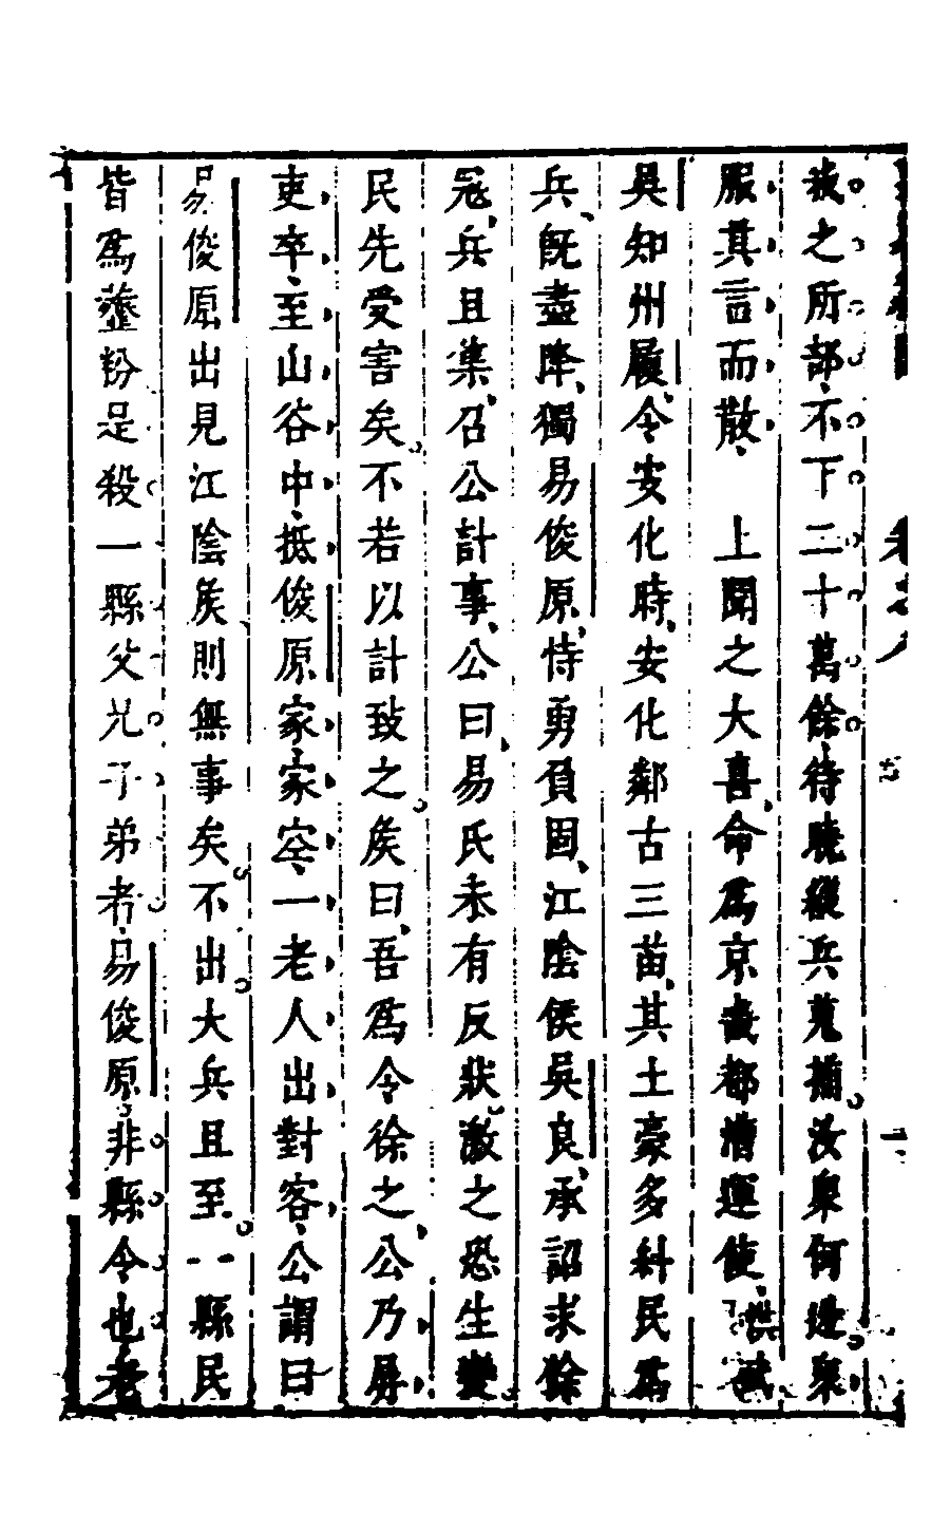 彼之所部不下二十萬餘待曉縱兵蒐捕汝衆何逃衆
服其言而散　上聞之大喜命爲京畿都漕運使洪武
吳知州履令安化時安化鄰古三苗其土豪多糾民爲
兵旣盡降獨易俊原恃勇負固江陰侯吳良承詔求餘
冦兵且集召公計事公曰易氏未有反狀激之恐生變
民先受害矣不若以計致之矦曰吾爲令徐之公乃屏
吏卒至山谷中抵俊原家家空一老人出對客公謂曰
易俊原出見江陰矦則無事矣不出大兵且至一縣民
皆爲虀粉是殺一縣父兄子弟者易俊原非縣令也老